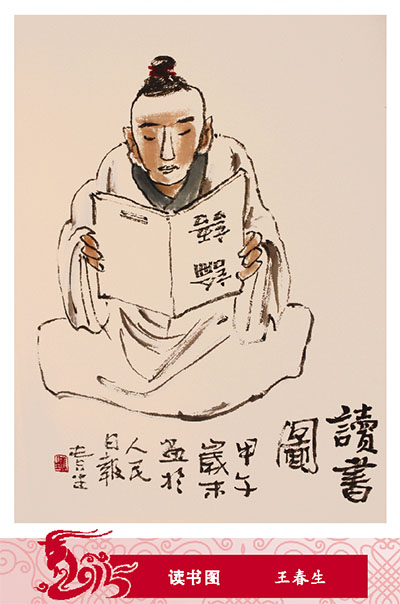 論語
讀書
圖
甲午
歲末
畫於
人民
日報
春生
2015
读书图 王春生